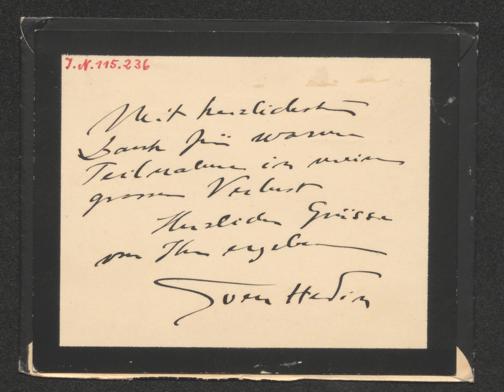 J.N. 115.236
Mit herzlichstem
Dank für warme
Teilnahme in meinem
grossen Verlust
Herzliche Grüsse
von Ihrem ergebenen
Sven Hedin